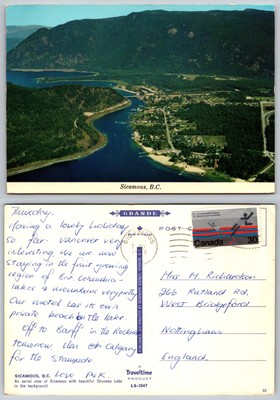 Sicamous, B.C.
Thursday.
Having a lovely holiday
so far Vancouver very
interesting We are now
staying in the fruit growing
region of Brit. Columbia -
lakes & mountains very pretty
Our motel has its own
private beach on the lake.
off to Banff in the Rockies
tomorrow then on Calgary
for the Stampede.
Love
GRANDE
POST C
SICAMOUS
Canada
30
Mrs M Richardson
266 Rutland Rd
West Bridgford
Nottingham
England.
SICAMOUS, B.C.
An aerial view of Sicamous with beautiful Shuswap Lake
in the background.
Traveltime
PRODUCT
LS-2067